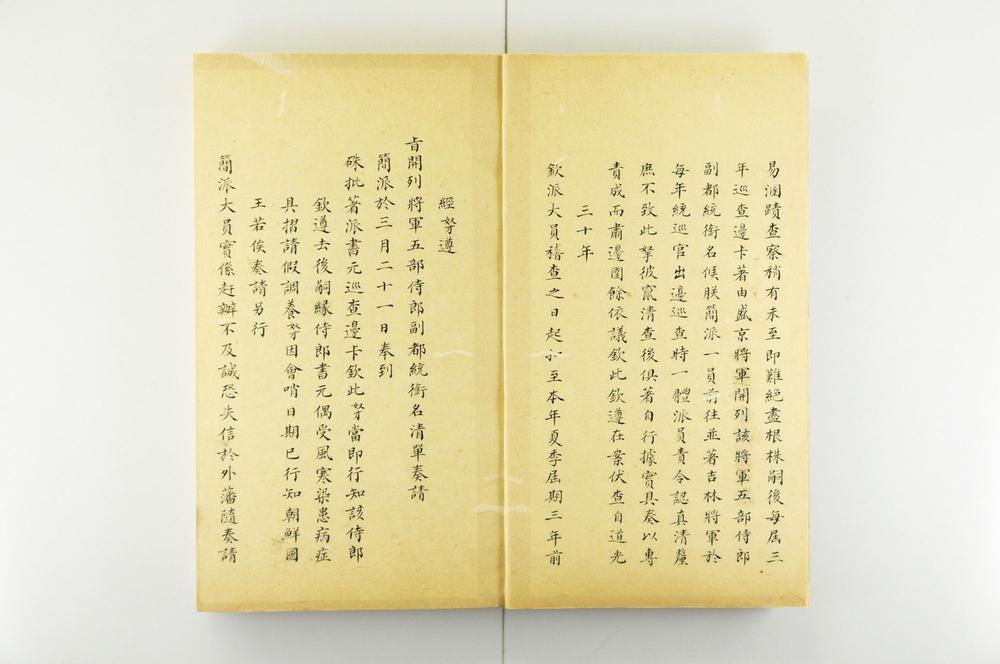 易溷蹟查察稍有未至即難絕盡根株嗣後每屆三
年巡查邊卡著由盛京將軍開列該將軍五部侍郎
副都統銜名候朕簡派一員前往並著吉林將軍於
每年統巡官出邊巡查時一體派員責令認真清釐
庶不致此拏彼竄清查後俱著自行據實具奏以專
責成而肅邊圉餘依議欽此欽遵在案伏查自道光
三十年
欽派大員稽查之日起扣至本年夏季屆期三年前
經奴遵
旨開列將軍五部侍郎副都統銜名清單奏請
簡派於三月二十一日奉到
硃批著派書元巡查邊卡欽此奴當即行知該侍郎
欽遵去後嗣緣侍郎書元偶受風寒染患病症
具摺請假調養奴因會哨日期已行知朝鮮國
王若俟奏請另行
簡派大員實係趕辦不及誠恐失信於外藩隨奏請